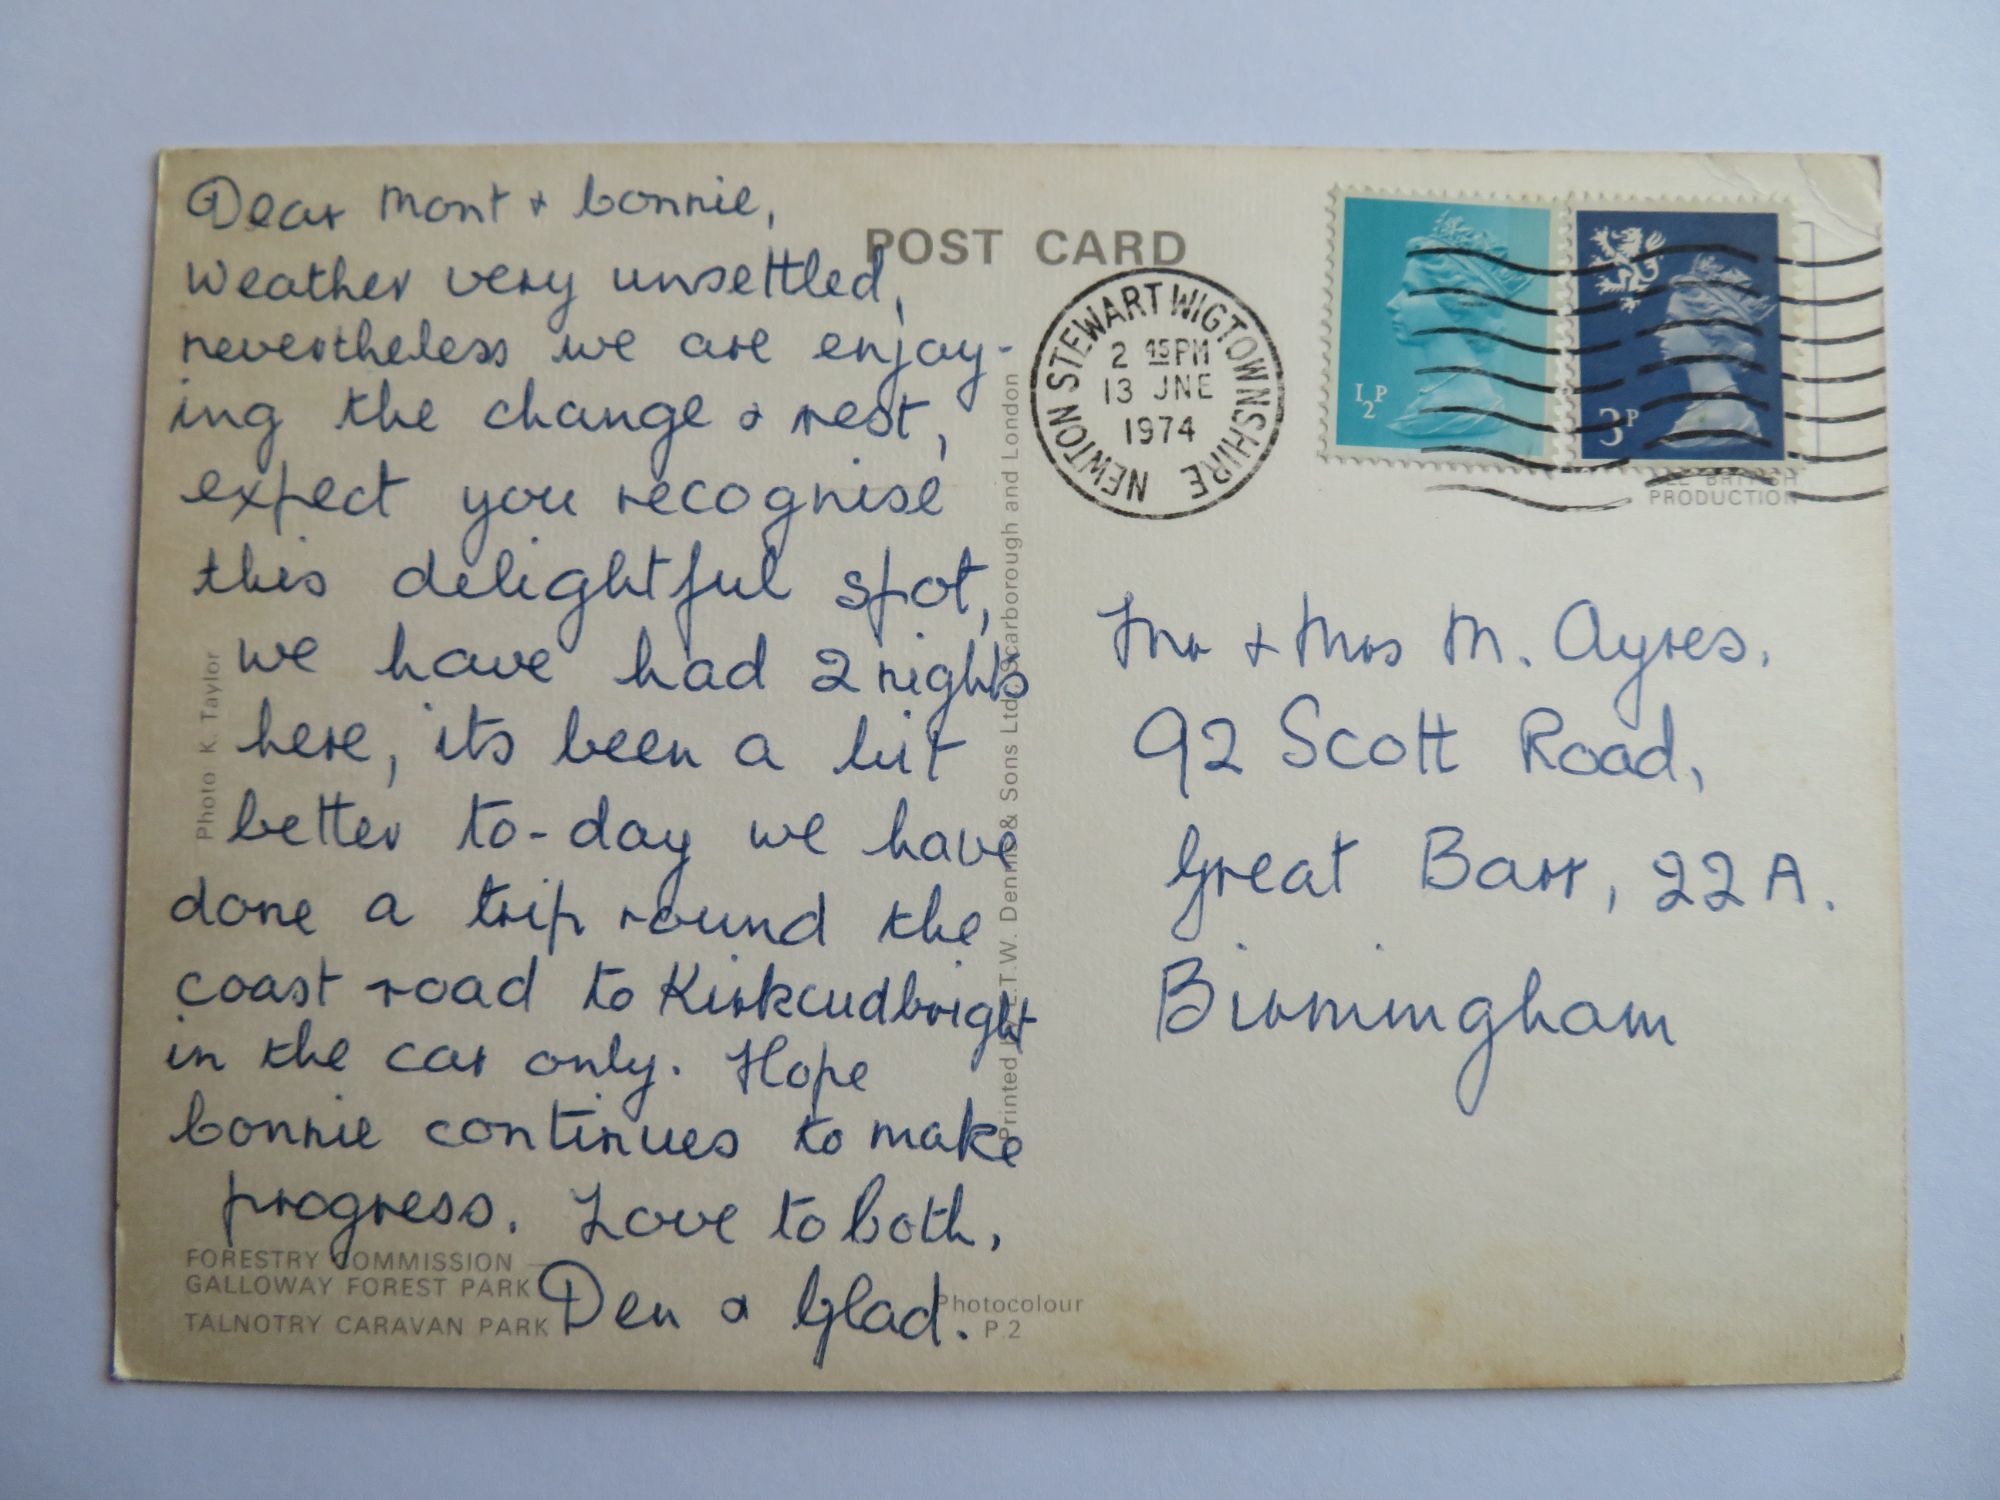 Dear Mont & Connie,
Weather very unsettled,
nevertheless we are enjoy-
ing the change & rest,
expect you recognise
this delightful spot,
we have had 2 nights
here, its been a bit
better to-day we have
done a trip round the
coast road to Kirkcudbright
in the car only. Hope
Connie continues to make
progress. Love to both,
Den & Glad.
FORESTRY COMMISSION
GALLOWAY FOREST PARK
TALNOTRY CARAVAN PARK
Photo K. Taylor
POST CARD
Printed by E.T.W. Dennis & Sons Ltd. Scarborough and London
Photocolour
P.2
NEWTON STEWART WIGTOWNSHIRE
2 45PM
13 JNE
1974
½P
3P
ALL BRITISH
PRODUCTION
Mr & Mrs M. Ayres,
92 Scott Road,
Great Barr, 22A.
Birmingham